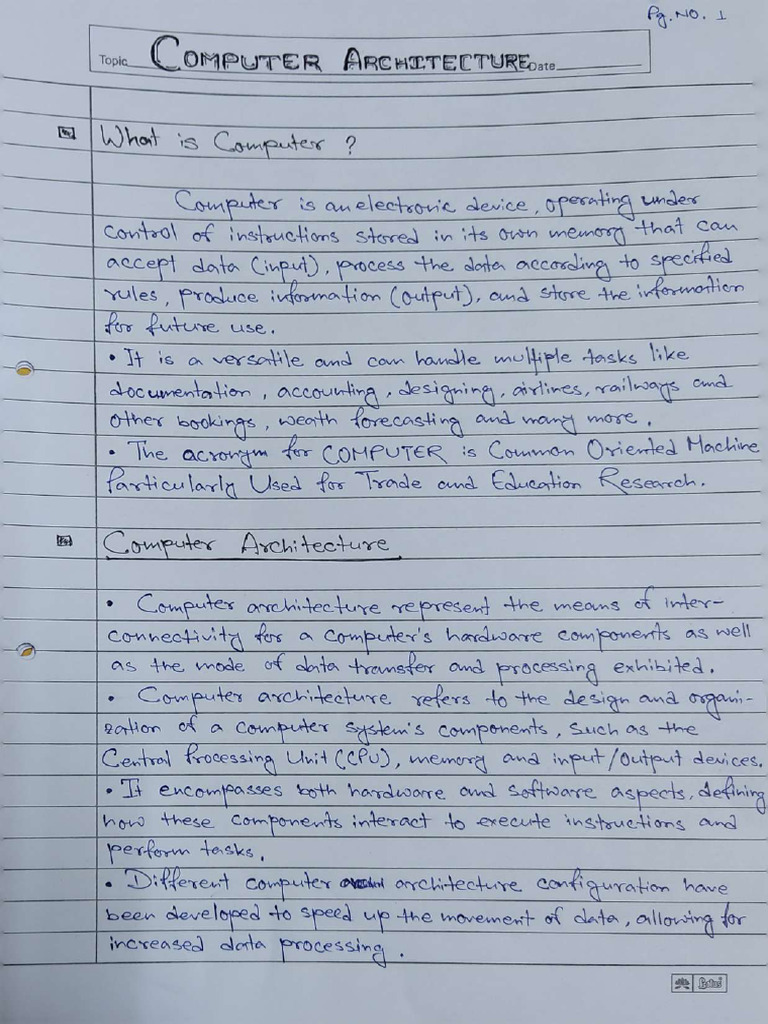 Pg. NO. 1
Topic COMPUTER ARCHITECTURE Date
What is Computer ?
Computer is an electronic device, operating under
control of instructions stored in its own memory that can
accept data (input), process the data according to specified
rules, produce information (output), and store the information
for future use.
• It is a versatile and can handle multiple tasks like
documentation, accounting, designing, airlines, railways and
other bookings, weath forecasting and many more.
• The acronym for COMPUTER is Common Oriented Machine
Particularly Used for Trade and Education Research.
Computer Architecture
• Computer architecture represent the means of inter-
connectivity for a computer's hardware components as well
as the mode of data transfer and processing exhibited.
• Computer architecture refers to the design and organi-
zation of a computer system's components, such as the
Central Processing Unit (CPU), memory and input/output devices.
• It encompasses both hardware and software aspects, defining
how these components interact to execute instructions and
perform tasks.
• Different computer architecture configuration have
been developed to speed up the movement of data, allowing for
increased data processing.